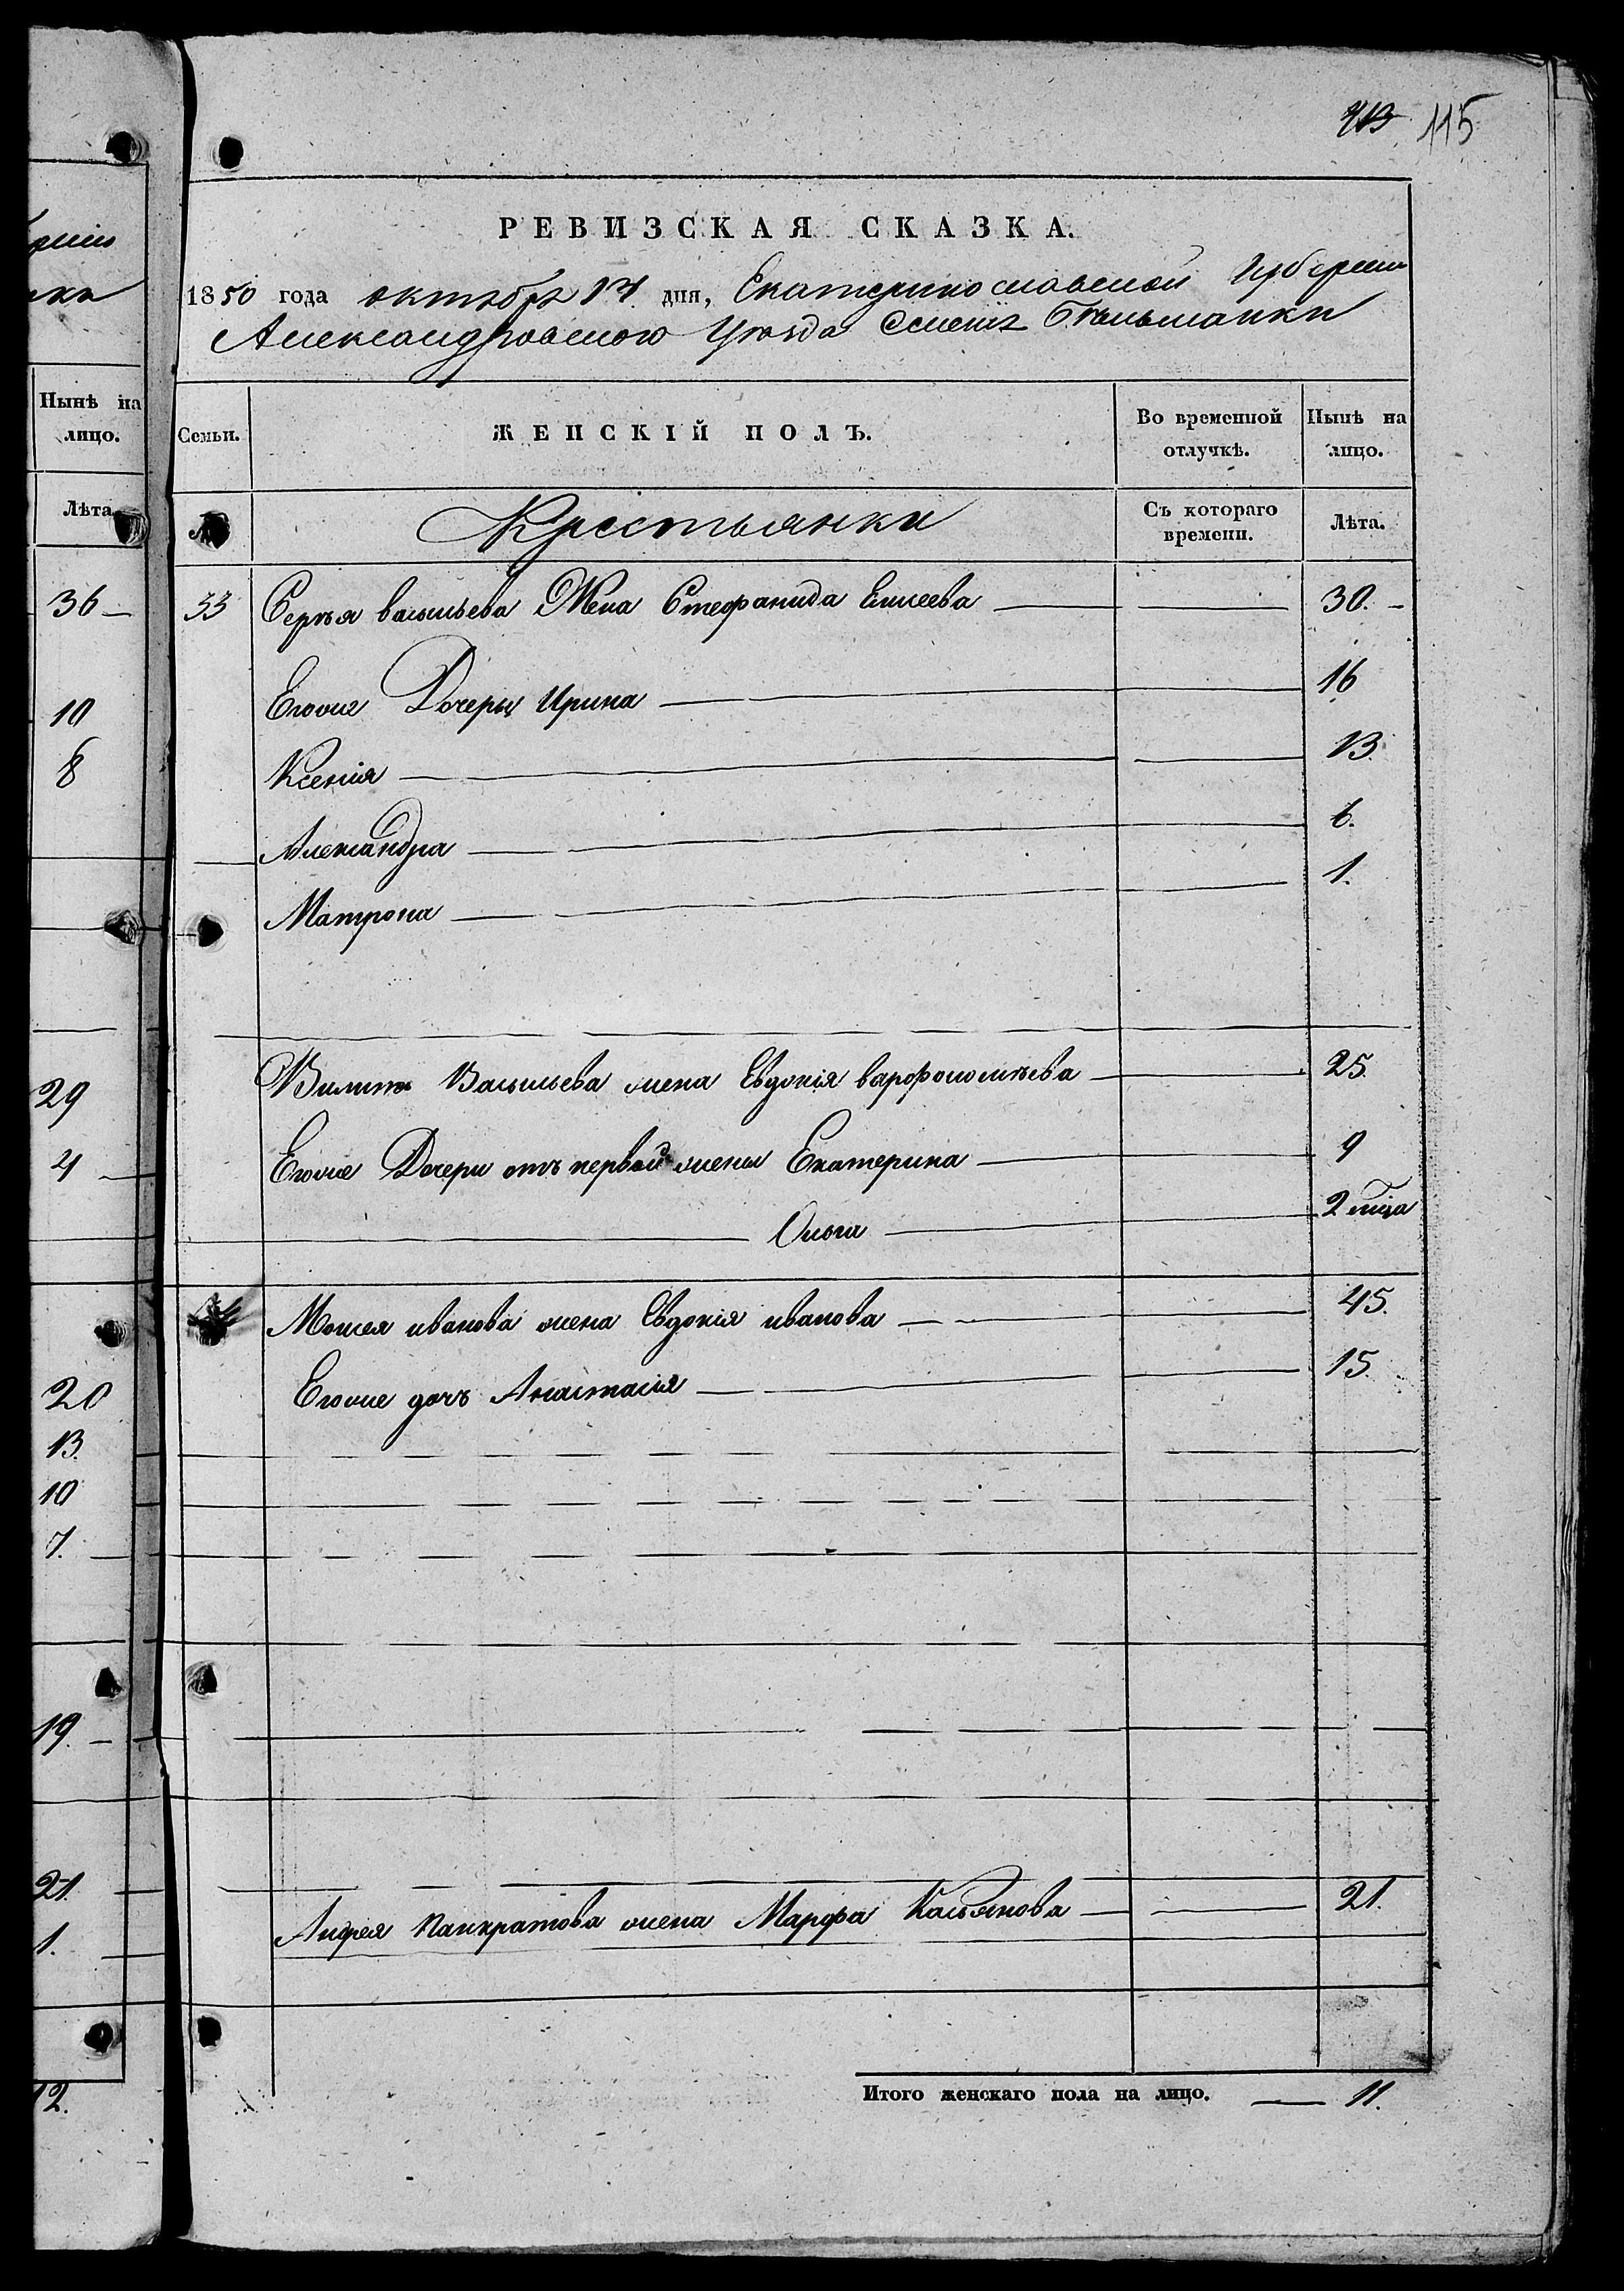 113 115
РЕВИЗСКАЯ СКАЗКА.
1850 года октября 17 дня, Екатеринославской Губернии
Александровского Уезда Бельманки
Нынѣ на лицо.
Семьи.
ЖЕНСКІЙ ПОЛЪ.
Во временной отлучкѣ.
Нынѣ на лицо.
Лѣта.
№
Крестьянки
Съ котораго времени.
Лѣта.
36 33 Сергѣя васильева Жена Стефанида Елисеева 30.
10 Его же Дочеры Ирина 16
8 Ксенія 13.
Александра 6.
Матрона 1.
29 Васильева жена Евдокія варфоломѣева 25.
4 Его же Дочери отъ первой жены Екатерина 9
Ольга 2 мѣца
Моисея иванова жена Евдокія иванова 45.
20 Его же дочь Анастасія 15.
13.
10
7.
19.
21.
1. Андрея панкратова жена Марфа Касьянова 21.
12. Итого женскаго пола на лицо. 11.